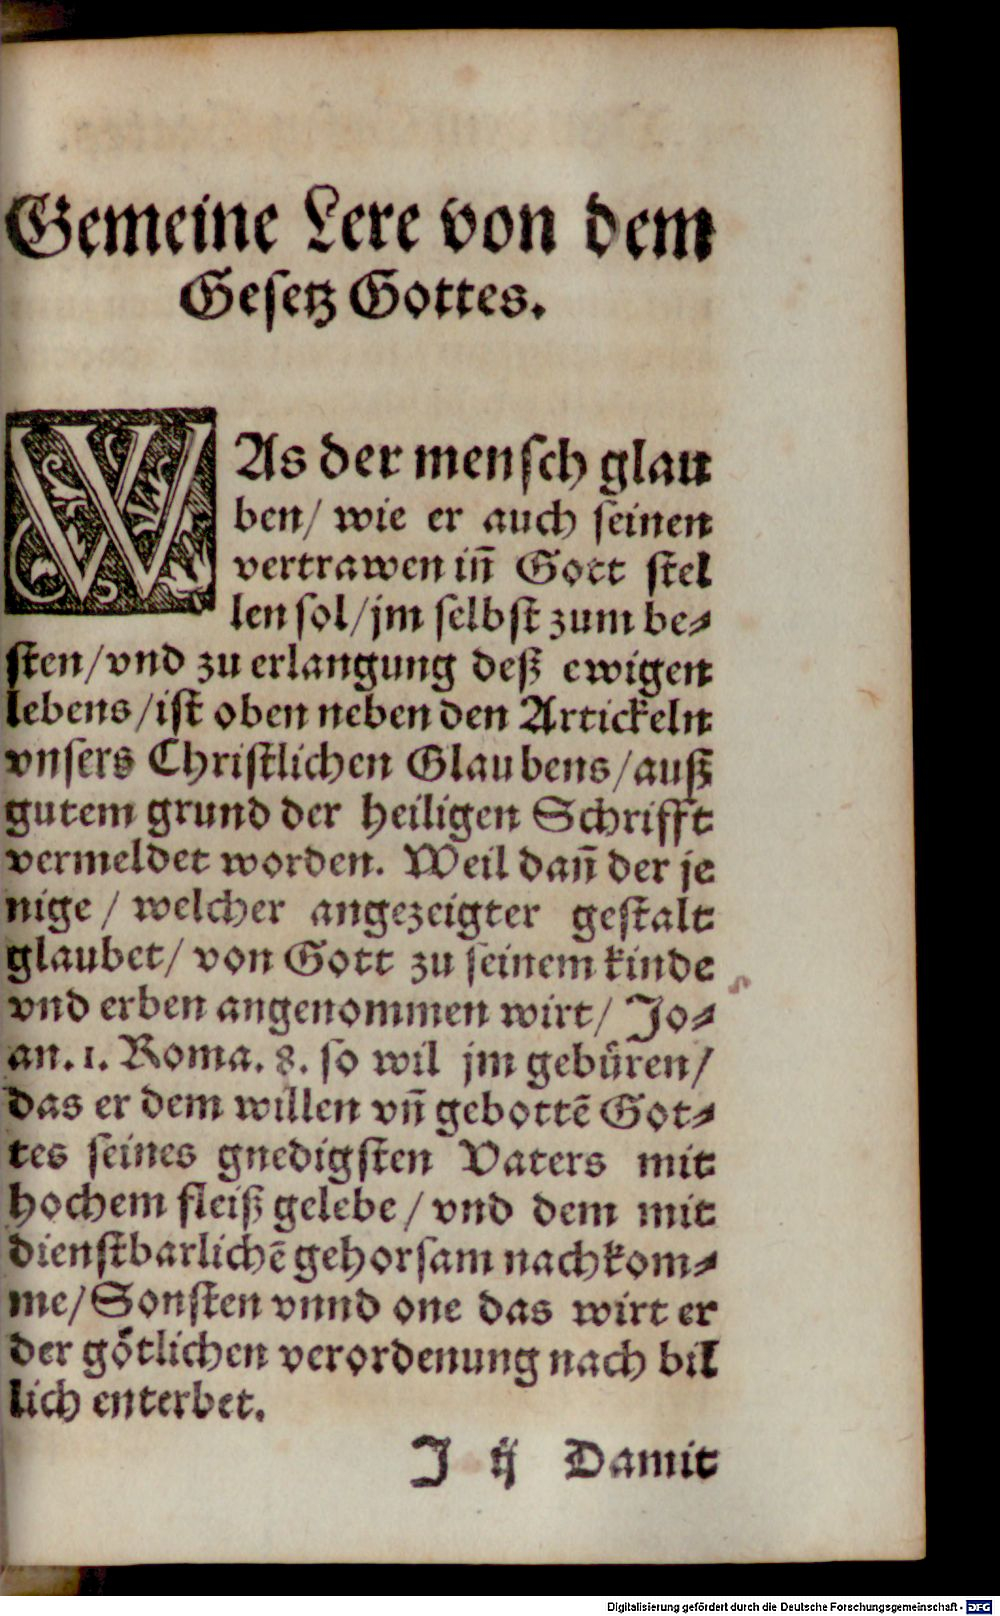 Gemeine Lere von dem
Gesetz Gottes.
WAs der mensch glau
ben/ wie er auch seinen
vertrawen in̄ Gott stel
len sol/ jm selbst zum be⸗
sten/ vnd zu erlangung deß ewigen
lebens/ ist oben neben den Artickeln
vnsers Christlichen Glaubens/ auß
gutem grund der heiligen Schrifft
vermeldet worden. Weil dan̄ der je
nige/ welcher angezeigter gestalt
glaubet/ von Gott zu seinem kinde
vnd erben angenommen wirt/ Jo⸗
an. 1. Roma. 8. so wil jm gebüren/
das er dem willen vn̄ gebottē Got⸗
tes seines gnedigsten Vaters mit
hochem fleiß gelebe/ vnd dem mit
dienstbarlichē gehorsam nachkom⸗
me/ Sonsten vnnd one das wirt er
der götlichen verordenung nach bil
lich enterbet.
J ij Damit
Digitalisierung gefördert durch die Deutsche Forschungsgemeinschaft - DFG